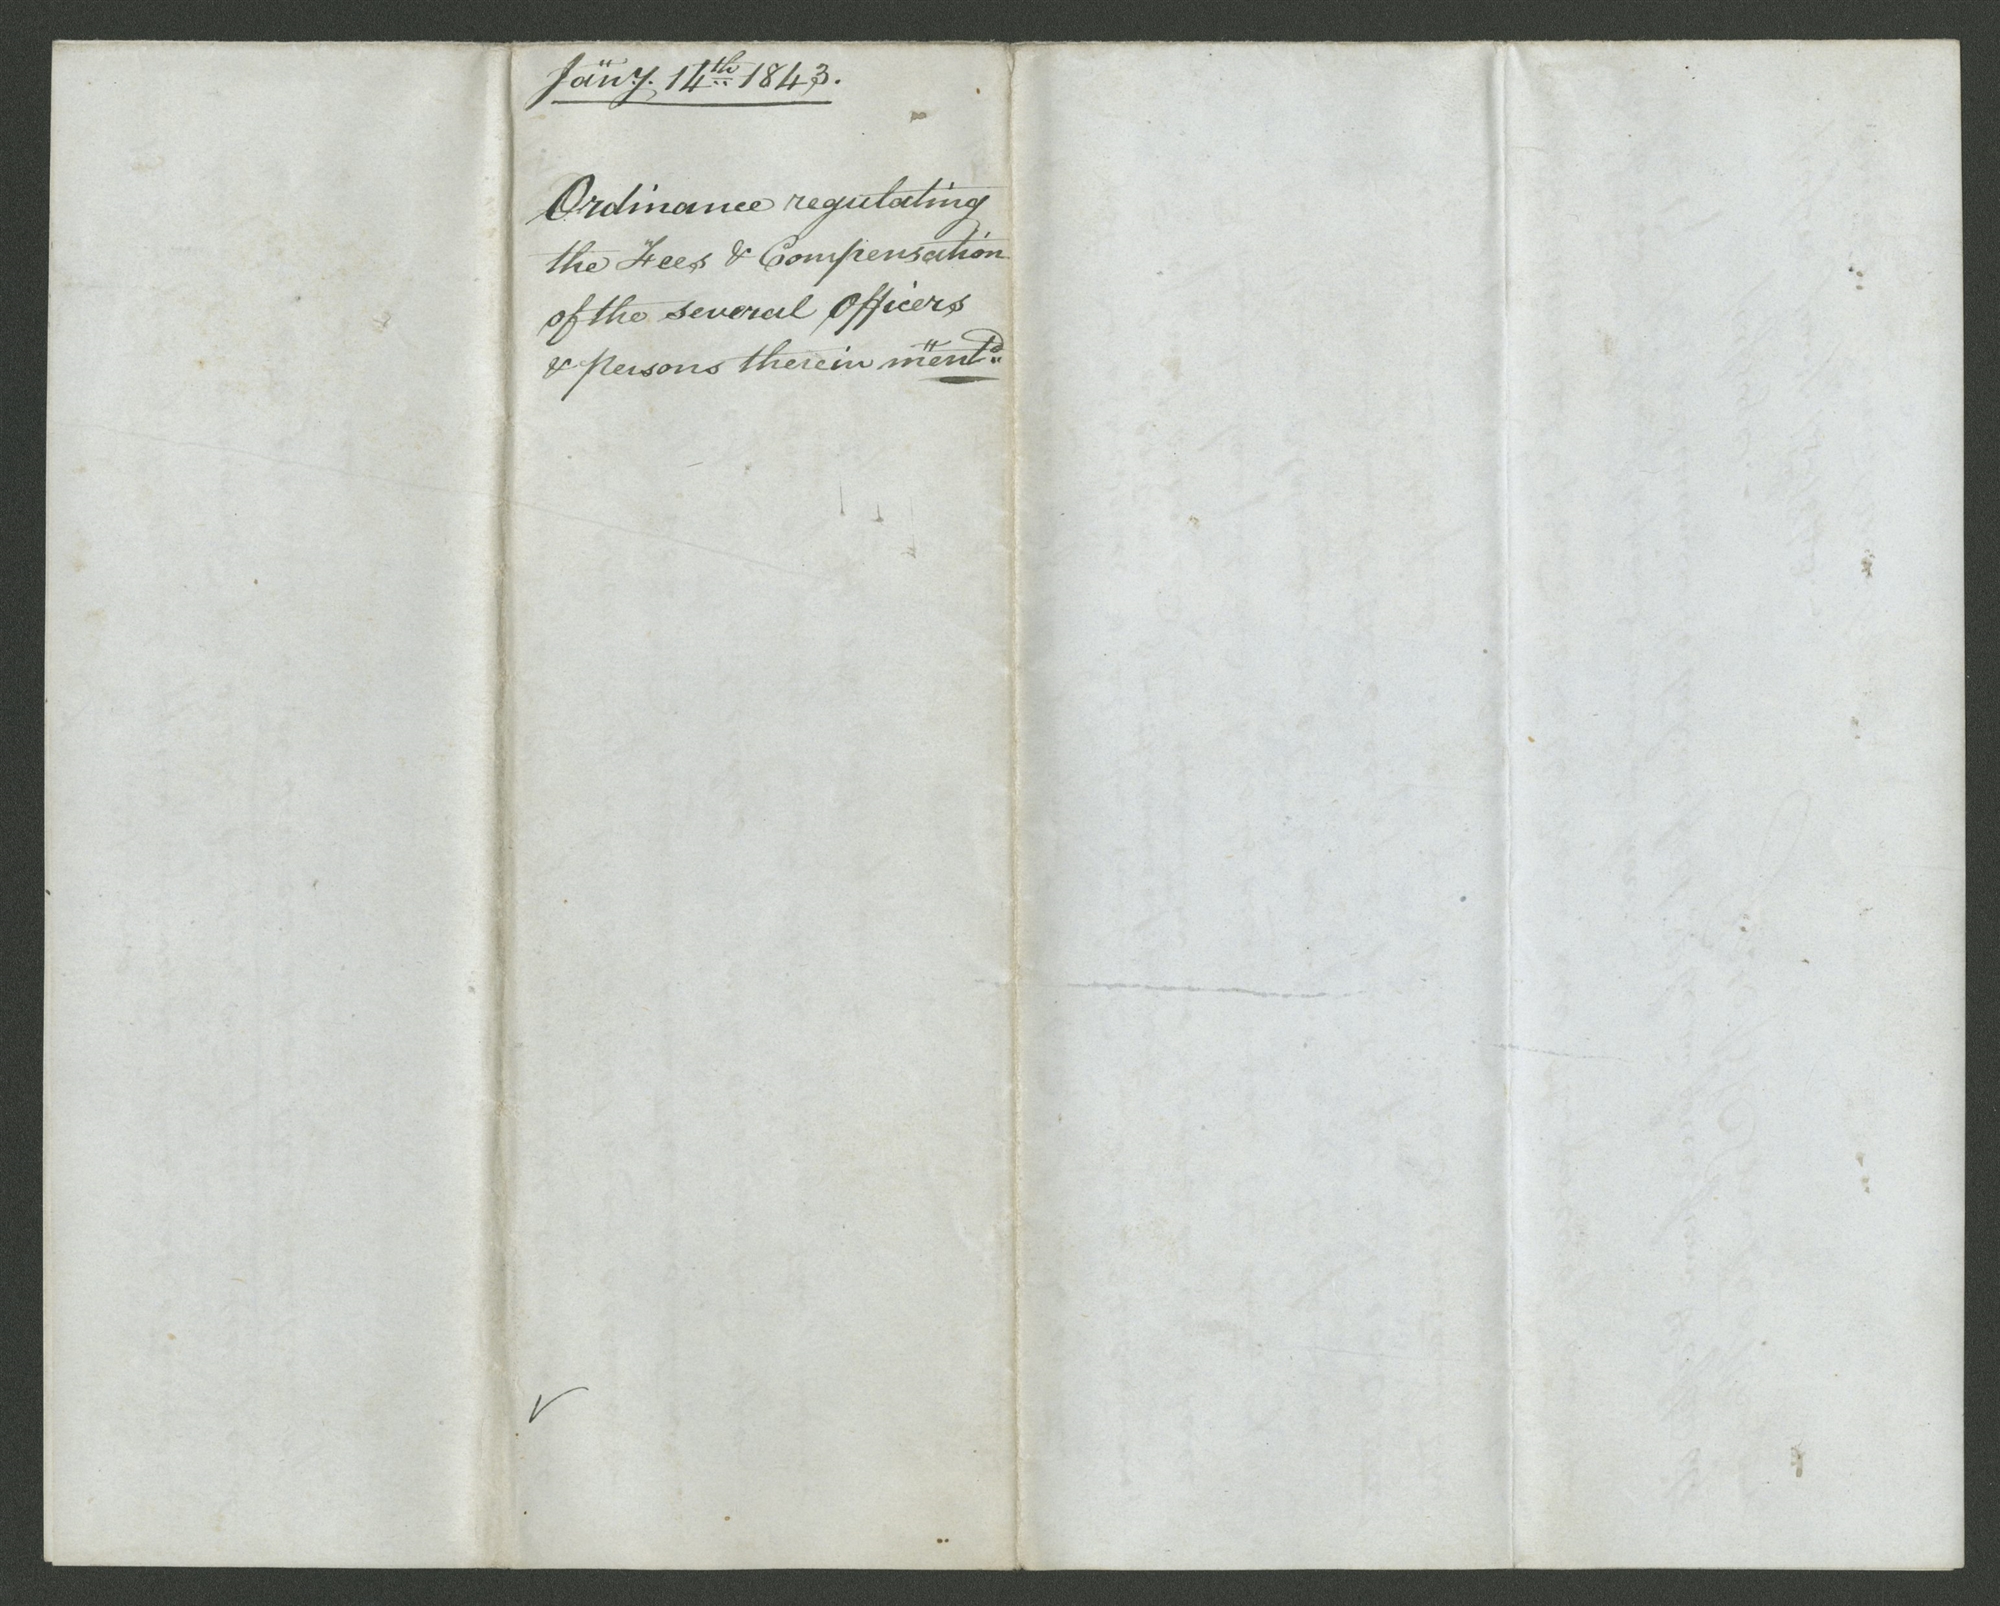 Jany. 14th 1843.
Ordinance regulating
the Fees & Compensation
of the several Officers
& persons therein mentd